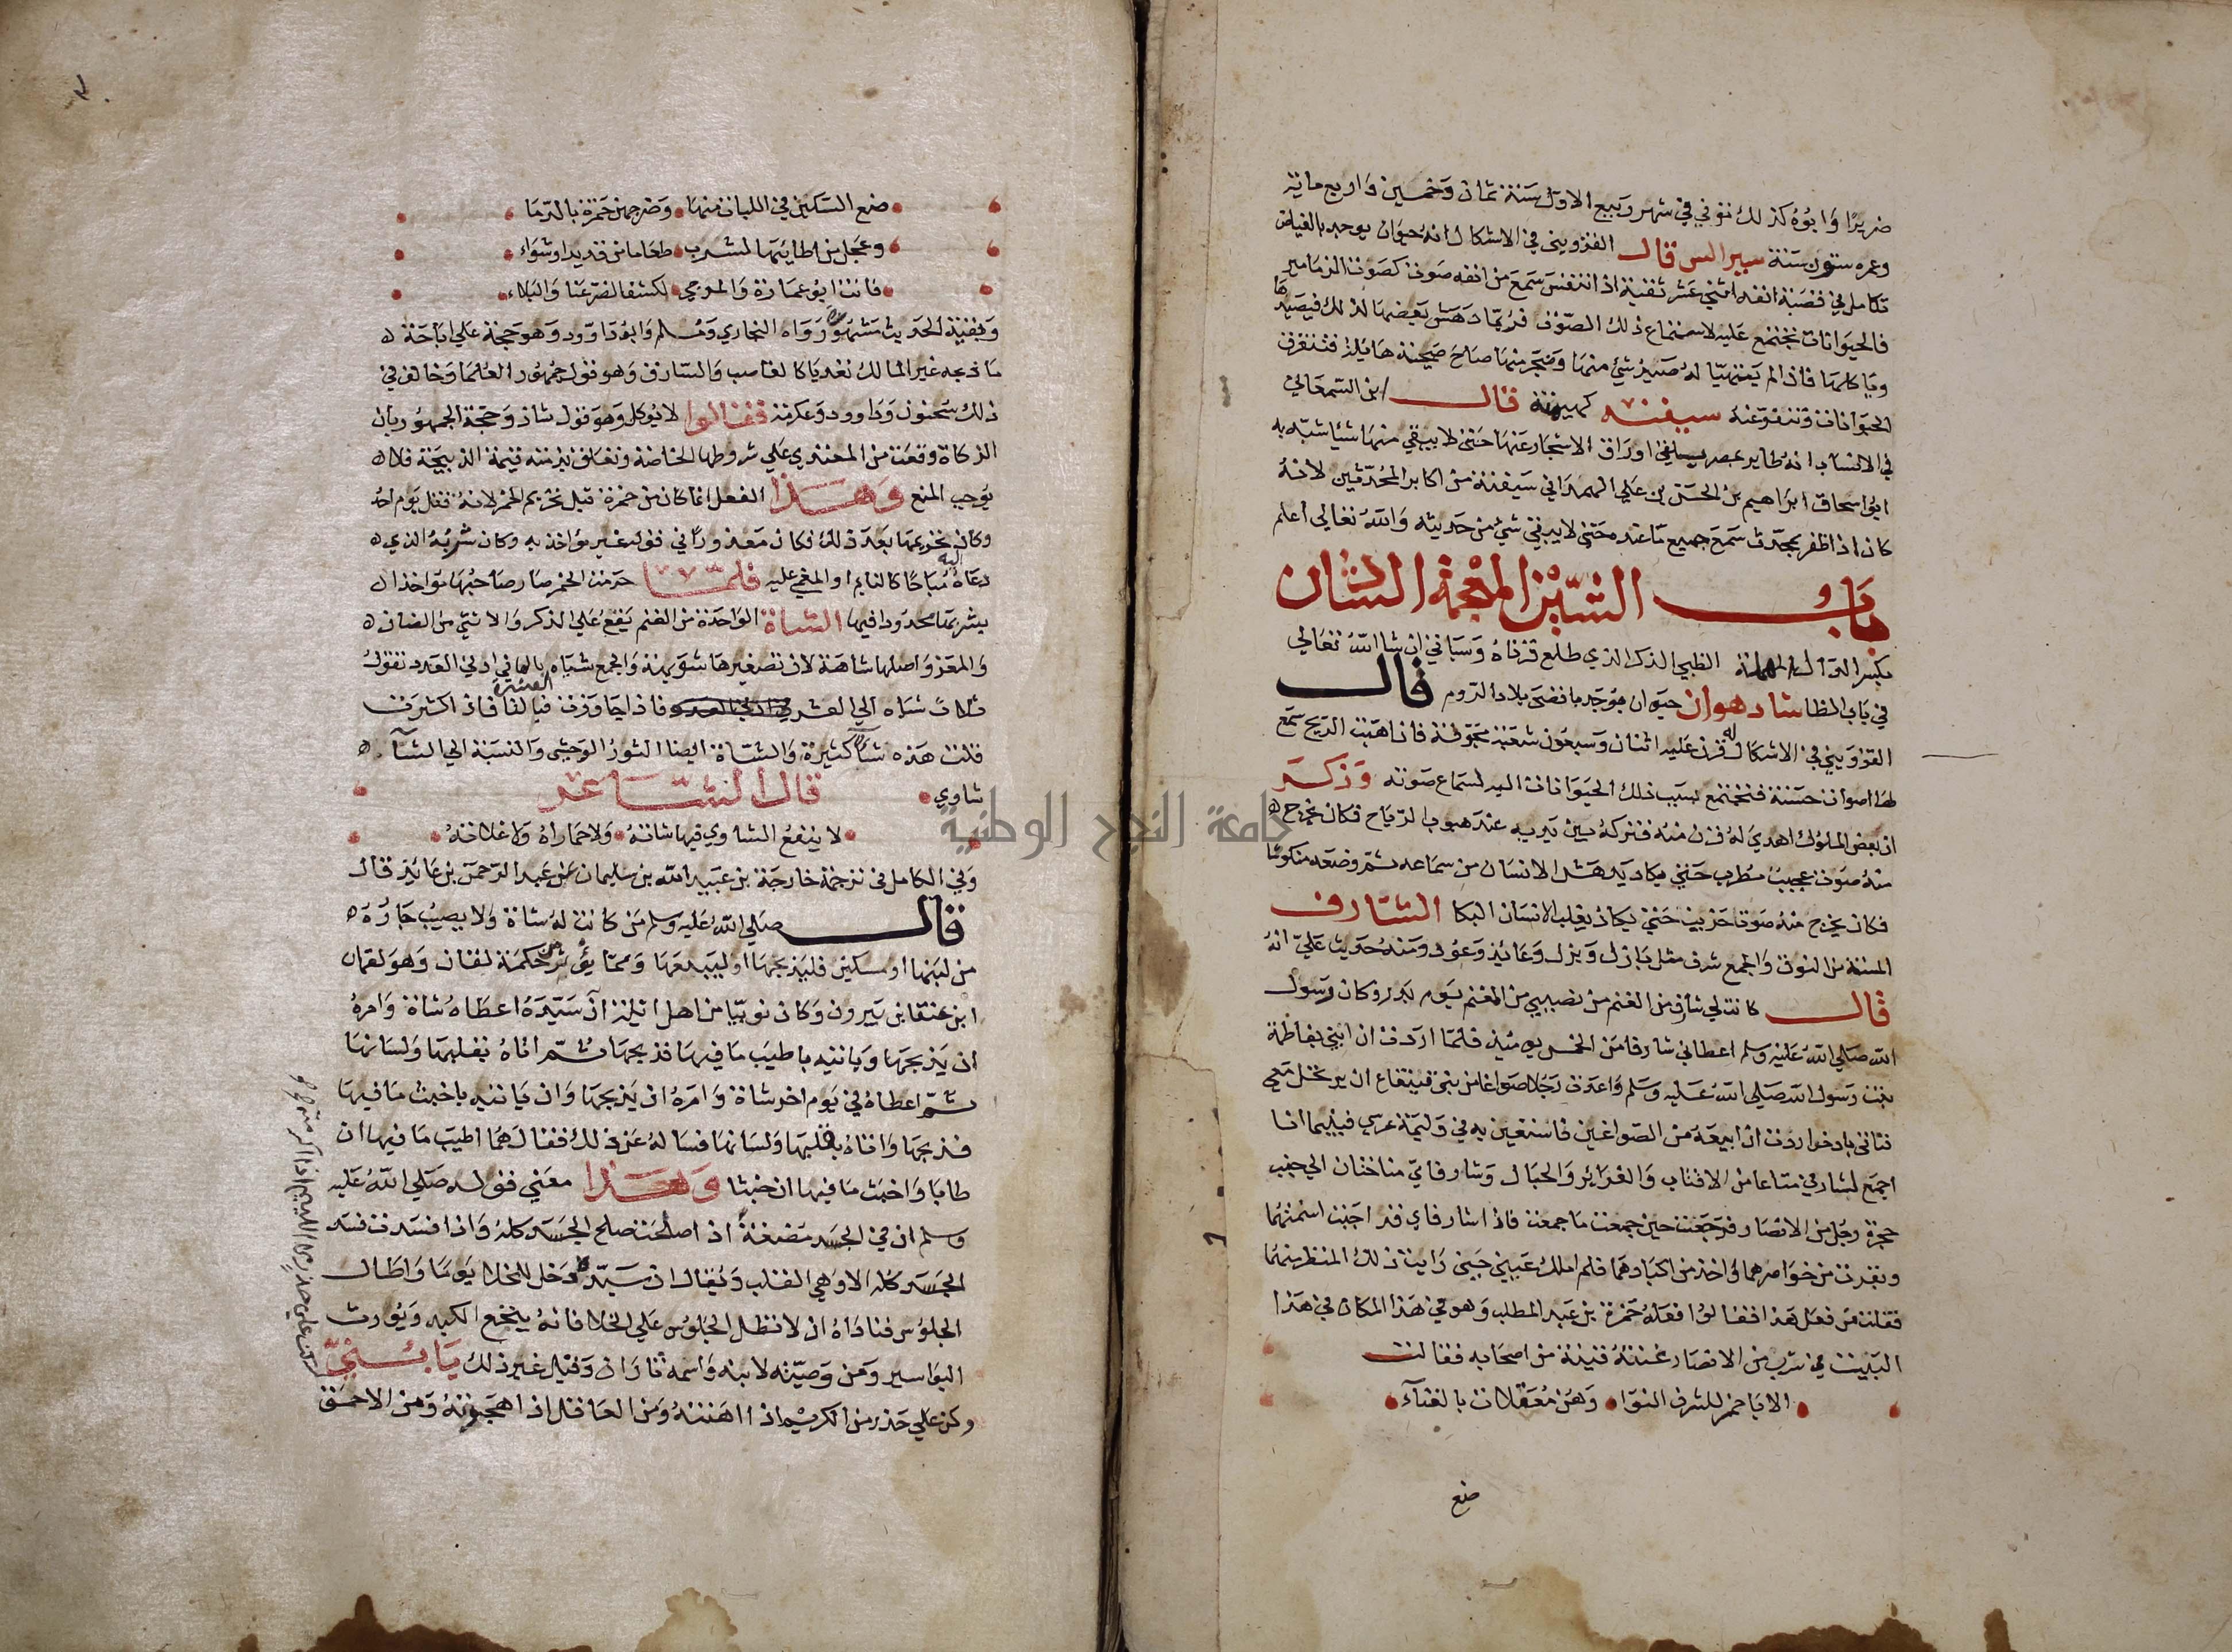 ضريرا وابوه كذلك توفي في شهر ربيع الاول سنة ثمان وخمسين واربع ماية
وعمره ستون سنة سيرالس قال القزويني في الاشكال انه حيوان يوجد بالغياض
تكامل في قصبة انفه اثني عشر ثقبة اذا تنفس سمع من انفه صوت كصوت المزامير
فالحيوانات تجتمع عليه لاستماع ذلك الصوت فربما دهش بعضها لذلك فيصيدها
وياكلها فاذا لم يتهيا له صيد شئ منها وضجر منها صاح صيحة هايلة فتتفرق
الحيوانات وتنفر عنه سيفنه كهينة قال ابن السمعاني
في الانساب انه طاير بمصر يلقي اوراق الاشجار عنها حتى لا يبقي منها شيئا شبه به
ابو اسحاق ابراهيم بن الحسن بن علي الهمداني سيفنة من اكابر المحدثين لانه
كان اذا ظفر بمحدث سمع جميع ما عنده حتى لا يبقي شئ من حديثه والله تعالي اعلم
باب الشين المعجمة الشادن
بكسر الدال المهملة الظبي الذكر الذي طلع قرناه وسياتي ان شا الله تعالي
في باب الظا شادهوان حيوان يوجد باقصى بلاد الروم قال
القزويني في الاشكال له قرن عليه اثنان وسبعون شعبة مجوفة فاذا هبت الريح سمع
لها اصوات حسنة فتجتمع بسبب ذلك الحيوانات اليه لسماع صوته وذكر
ان بعض الملوك اهدي له قرن منه فتركه بين يديه عند هبوب الرياح فكان يخرج
منه صوت عجيب مطرب حتي يكاد يدهش الانسان من سماعه ثم وضعه منكوسا
فكان يخرج منه صوتا حزينا حتي يكاد يغلب الانسان البكا الشارف
المسنة من النوق والجمع شرف مثل بازل وبزل وعائذ وعوذ ومنه حديث علي انه
قال كانت لي شارف من الغنم من نصيبي من المغنم يوم بدر وكان رسول
الله صلي الله عليه وسلم اعطاني شارفا من الخمس يومئذ فلما اردت ان ابني بفاطمة
بنت رسول الله صلي الله عليه وسلم واعدت رجلا صواغا من بني قينقاع ان يرتحل معي
فناتي باذخر اردت ان ابيعه من الصواغين فاستعين به في وليمة عرسي فبينما انا
اجمع لشارفي متاعا من الاقتاب والغرائر والحبال وشارفاي مناختان الي جنب
حجرة رجل من الانصار فرجعت حين جمعت ما جمعت فاذا شارفاي قد اجتبت اسنمتهما
وبقرت من خواصرهما واخذ من اكبادهما فلم املك عيني حين رايت ذلك المنظر منهما
فقلت من فعل هذا فقالوا فعله حمزة بن عبد المطلب وهو في هذا المكان في هذا
البيت في شرب من الانصار غنته قينة من اصحابه فقالت
الا يا حمز للشرف النوا وهن معقلات بالفناء
ضع
ضع السكين في اللبات منها وضرجهن حمزة بالدما
وعجل من اطايبها لشرب طعاما من قديد او شواء
فانت ابو عمارة والمرجي لكشف الضر عنا والبلاء
وبقية الحديث مشهور رواه البخاري ومسلم وابو داوود وهو حجة علي اباحة
ما ذبحه غير المالك تعديا كالغاصب والسارق وهو قول جمهور العلما وخالف في
ذلك سحنون وداوود وعكرمة فقالوا لا يوكل وهو قول شاذ وحجة الجمهور بان
الذكاة وقعت من المعتدي علي شروطها الخاصة وتعلق بذمته قيمة الذبيحة فلا
يوجب المنع وهذا الفعل انما كان من حمزة قبل تحريم الخمر لانه قتل يوم احد
وكان تحريمها بعد ذلك فكان معذورا في قوله غير مؤاخذ به وكان شربه الذي
دعاه اليه مباحا كالنايم او المغمي عليه فلما حرمت الخمر صار صاحبها مواخذا
بشربها محدودا فيها الشاة الواحدة من الغنم يقع علي الذكر والانثي من الضان
والمعز واصلها شاهة لان تصغيرها شويهة والجمع شياه بالها في ادني العدد تقول
ثلاث شياه الي العشر فاذا جاوزت العشرة فبالتا فاذا كثرت
قلت هذه شاء كثيرة والشاة ايضا الثور الوحشي والنسبة الي الشآ
شاوي قال الشاعر
لا ينفع الشاوي فيها شاته ولا حماراه ولا علاته
وفي الكامل في ترجمة خارجة بن عبيد الله بن سليمان عن عبد الرحمن بن عائذ قال
قال صلي الله عليه وسلم من كانت له شاة ولا يصيب جاره
من لبنها او مسكين فليذبحها او ليبعها ومما يؤثر من حكمة لقمان وهو لقمان
ابن عنقا بن بيرون وكان نوبيا من اهل ايلة ان سيده اعطاه شاة وامره
ان يذبحها وياتيه باطيب ما فيها فذبحها ثم اتاه بقلبها ولسانها
ثم اعطاه في يوم اخر شاة وامره ان يذبحها وان ياتيه باخبث ما فيها
فذبحها واتاه بقلبها ولسانها فساله عن ذلك فقال هما اطيب ما فيها ان
طابا واخبث ما فيها ان خبثا وهذا معني قوله صلي الله عليه
وسلم ان في الجسد مضغة اذا صلحت صلح الجسد كله واذا فسدت فسد
الجسد كله الا وهي القلب ويقال ان سيده دخل للخلا يوما واطال
الجلوس فناداه ان لا تطل الجلوس علي الخلا فانه ينخع الكبد ويورث
البواسير ومن وصيته لابنه واسمه ثاران وقيل غير ذلك يا بني
وكن علي حذر من الكريم اذا اهنته ومن العاقل اذا هجوته ومن الاحمق
كن علي حذر من اللئيم اذا اكرمته
جامعة النجاح الوطنية